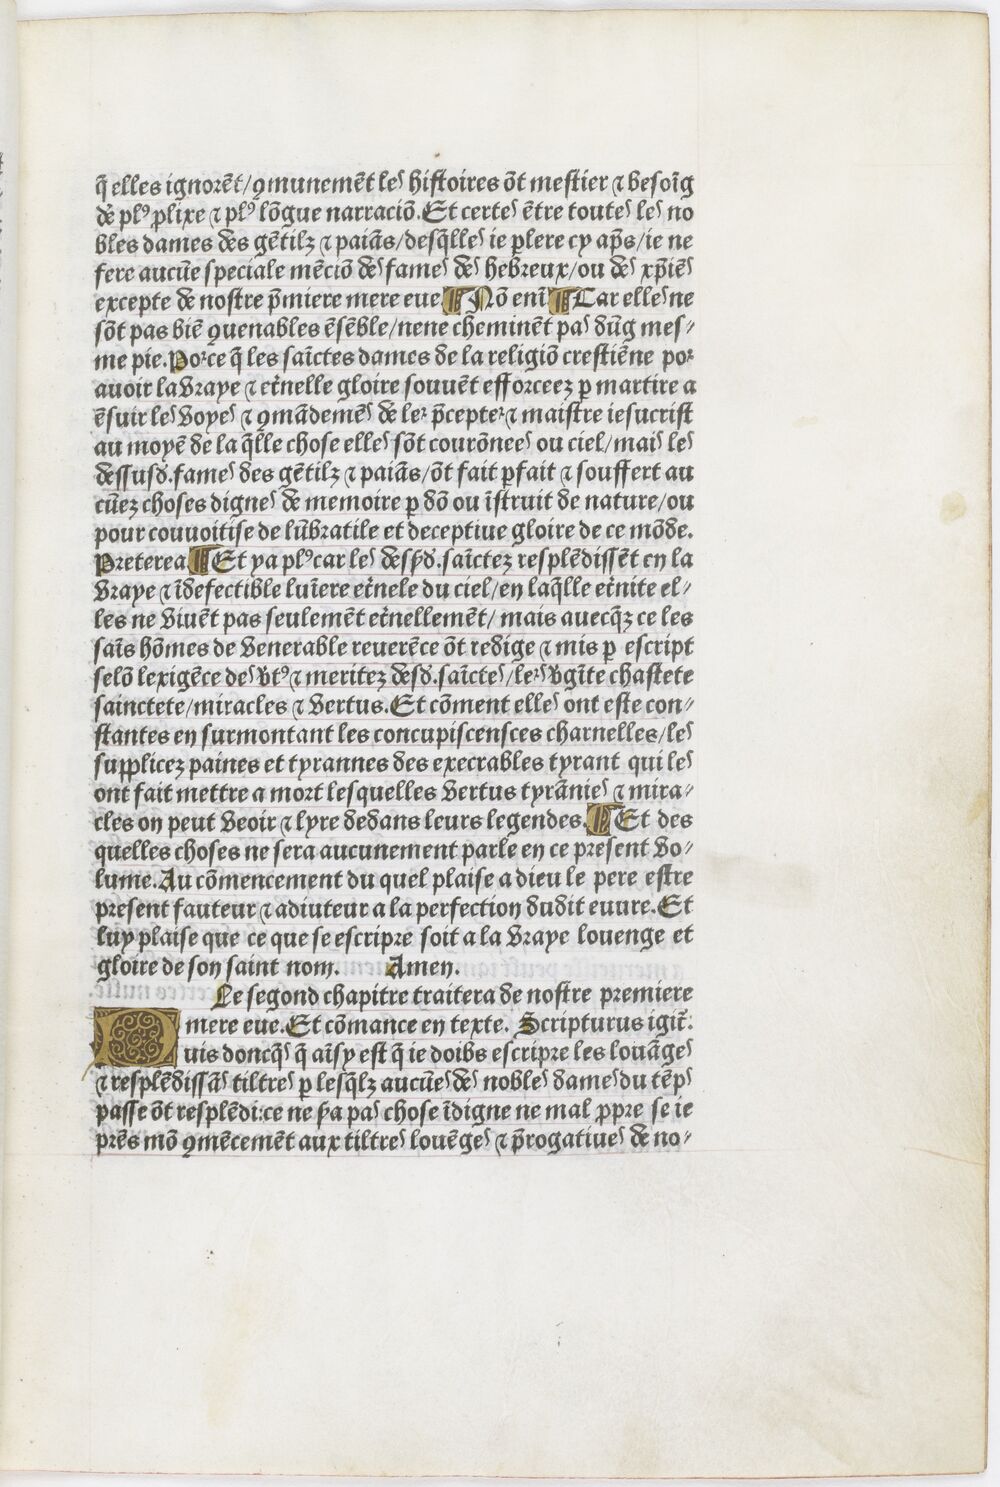 q̃ elles ignorẽt/ꝯmunemẽt leˢ histoires õt mestier ⁊ besoĩg
de᷒ plꝰ ꝓlixe ⁊ plꝰ lõgue narraciõ. Et certeˢ ẽtre touteˢ leˢ no
bles dames des gẽtilz ⁊ paiãs/desq̃lleˢ ie ꝑlere cy ap̃s/ie ne
fere aucũe speciale mẽciõ deˢ fameˢ deˢ hebreux/ou deˢ xp̃iẽˢ
excepte de nostre p̃miere mere eue ¶ Nõ enĩ ¶ Car elleˢ ne
sõt pas biẽ ꝯuenables ẽsẽble/nene cheminẽt paˢ dũg mes⸗
me pie. Porce q̃ les saĩctes dames de la religiõ crestiẽne por
auoir la vraye ⁊ et̃nelle gloire souuẽt efforceez ꝑ martire a
ẽsuir leˢ voyeˢ ⁊ ꝯmãdemẽˢ de leʳ p̃cepteʳ ⁊ maistre iesucrist
au moyẽ de la q̃lle chose elleˢ sõt courõneeˢ ou ciel/maiˢ leˢ
dessusd̃. fameˢ des gẽtilz ⁊ paiãs/õt fait ꝑfait ⁊ souffert au
cũez choses digneˢ de memoire ꝑ dõ ou ĩstruit de nature/ou
pour couuoitise de lũbratile et deceptiue gloire de ce mõde.
Preterea ¶ Et ya plꝰ car leˢ desꝰd̃. saĩctez resplẽdissẽt en la
vraye ⁊ ĩdefectible luĩere et̃nele du ciel/en laq̃lle et̃nite el⸗
les ne viuẽt pas seulemẽt et̃nellemẽt/ mais auecq̃z ce les
saĩs hõmes de venerable reuerẽce õt redige ⁊ mis ꝑ escript
selõ lexigẽce deˢ v̾tꝰ ⁊ meritez desd̃. saĩcteˢ/leʳˢ v̾gĩte chastete
sainctete/miracles ⁊ vertus. Et cõment elleˢ ont este con⸗
stantes en surmontant les concupiscensces charnelles/leˢ
supplicez paines et tyrannes des execrables tyrant qui leˢ
ont fait mettre a mort lesquelles vertus tyrãnieˢ ⁊ mira⸗
cles on peut veoir ⁊ lyre dedans leurs legendes. ¶ Et des
quelles choses ne sera aucunement parle en ce present vo⸗
lume. Au cõmencement du quel plaise a dieu le pere estre
present fauteur ⁊ adiuteur a la perfection dudit euure. Et
luy plaise que ce que se escripre soit a la vraye louenge et
gloire de son saint nom. Amen.
Le segond chapitre traitera de nostre premiere
mere eue. Et cõmance en texte. Scripturus igit̃.
Puis doncq̃ˢ q̃ aĩsy est q̃ ie doibs escripre les louãgeˢ
⁊ resplẽdissãˢ tiltreˢ ꝑ lesq̃lz aucũeˢ deˢ nobleˢ dameˢ du tẽpˢ
passe õt resplẽdi:ce ne s̃a paˢ chose ĩdigne ne mal ꝓpre se ie
prẽs mõ ꝯmẽcemẽt aux tiltreˢ louẽgeˢ ⁊ p̃rogatiueˢ de no⸗